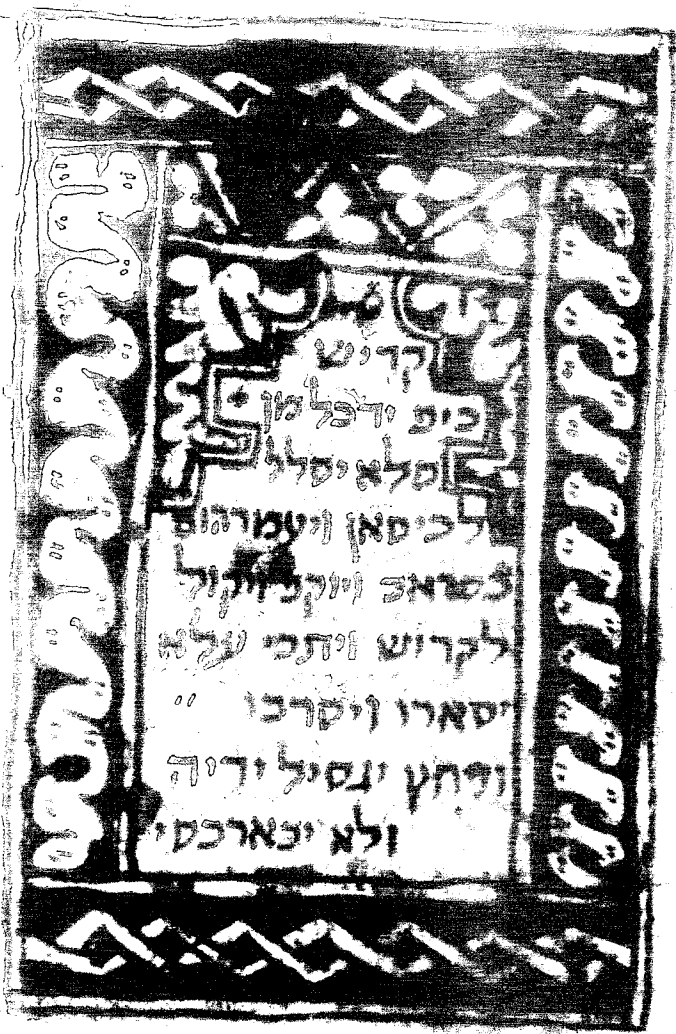 קדיש
כיפ ידכל מן
סלא יסלל
לכיסאן ויעמרהום
בסראב ויוקפ ויקול
לקדוש ויתכי עלא
יסארו ויסרבו
ורחץ יגסיל ידיה
ולא יבארכסי